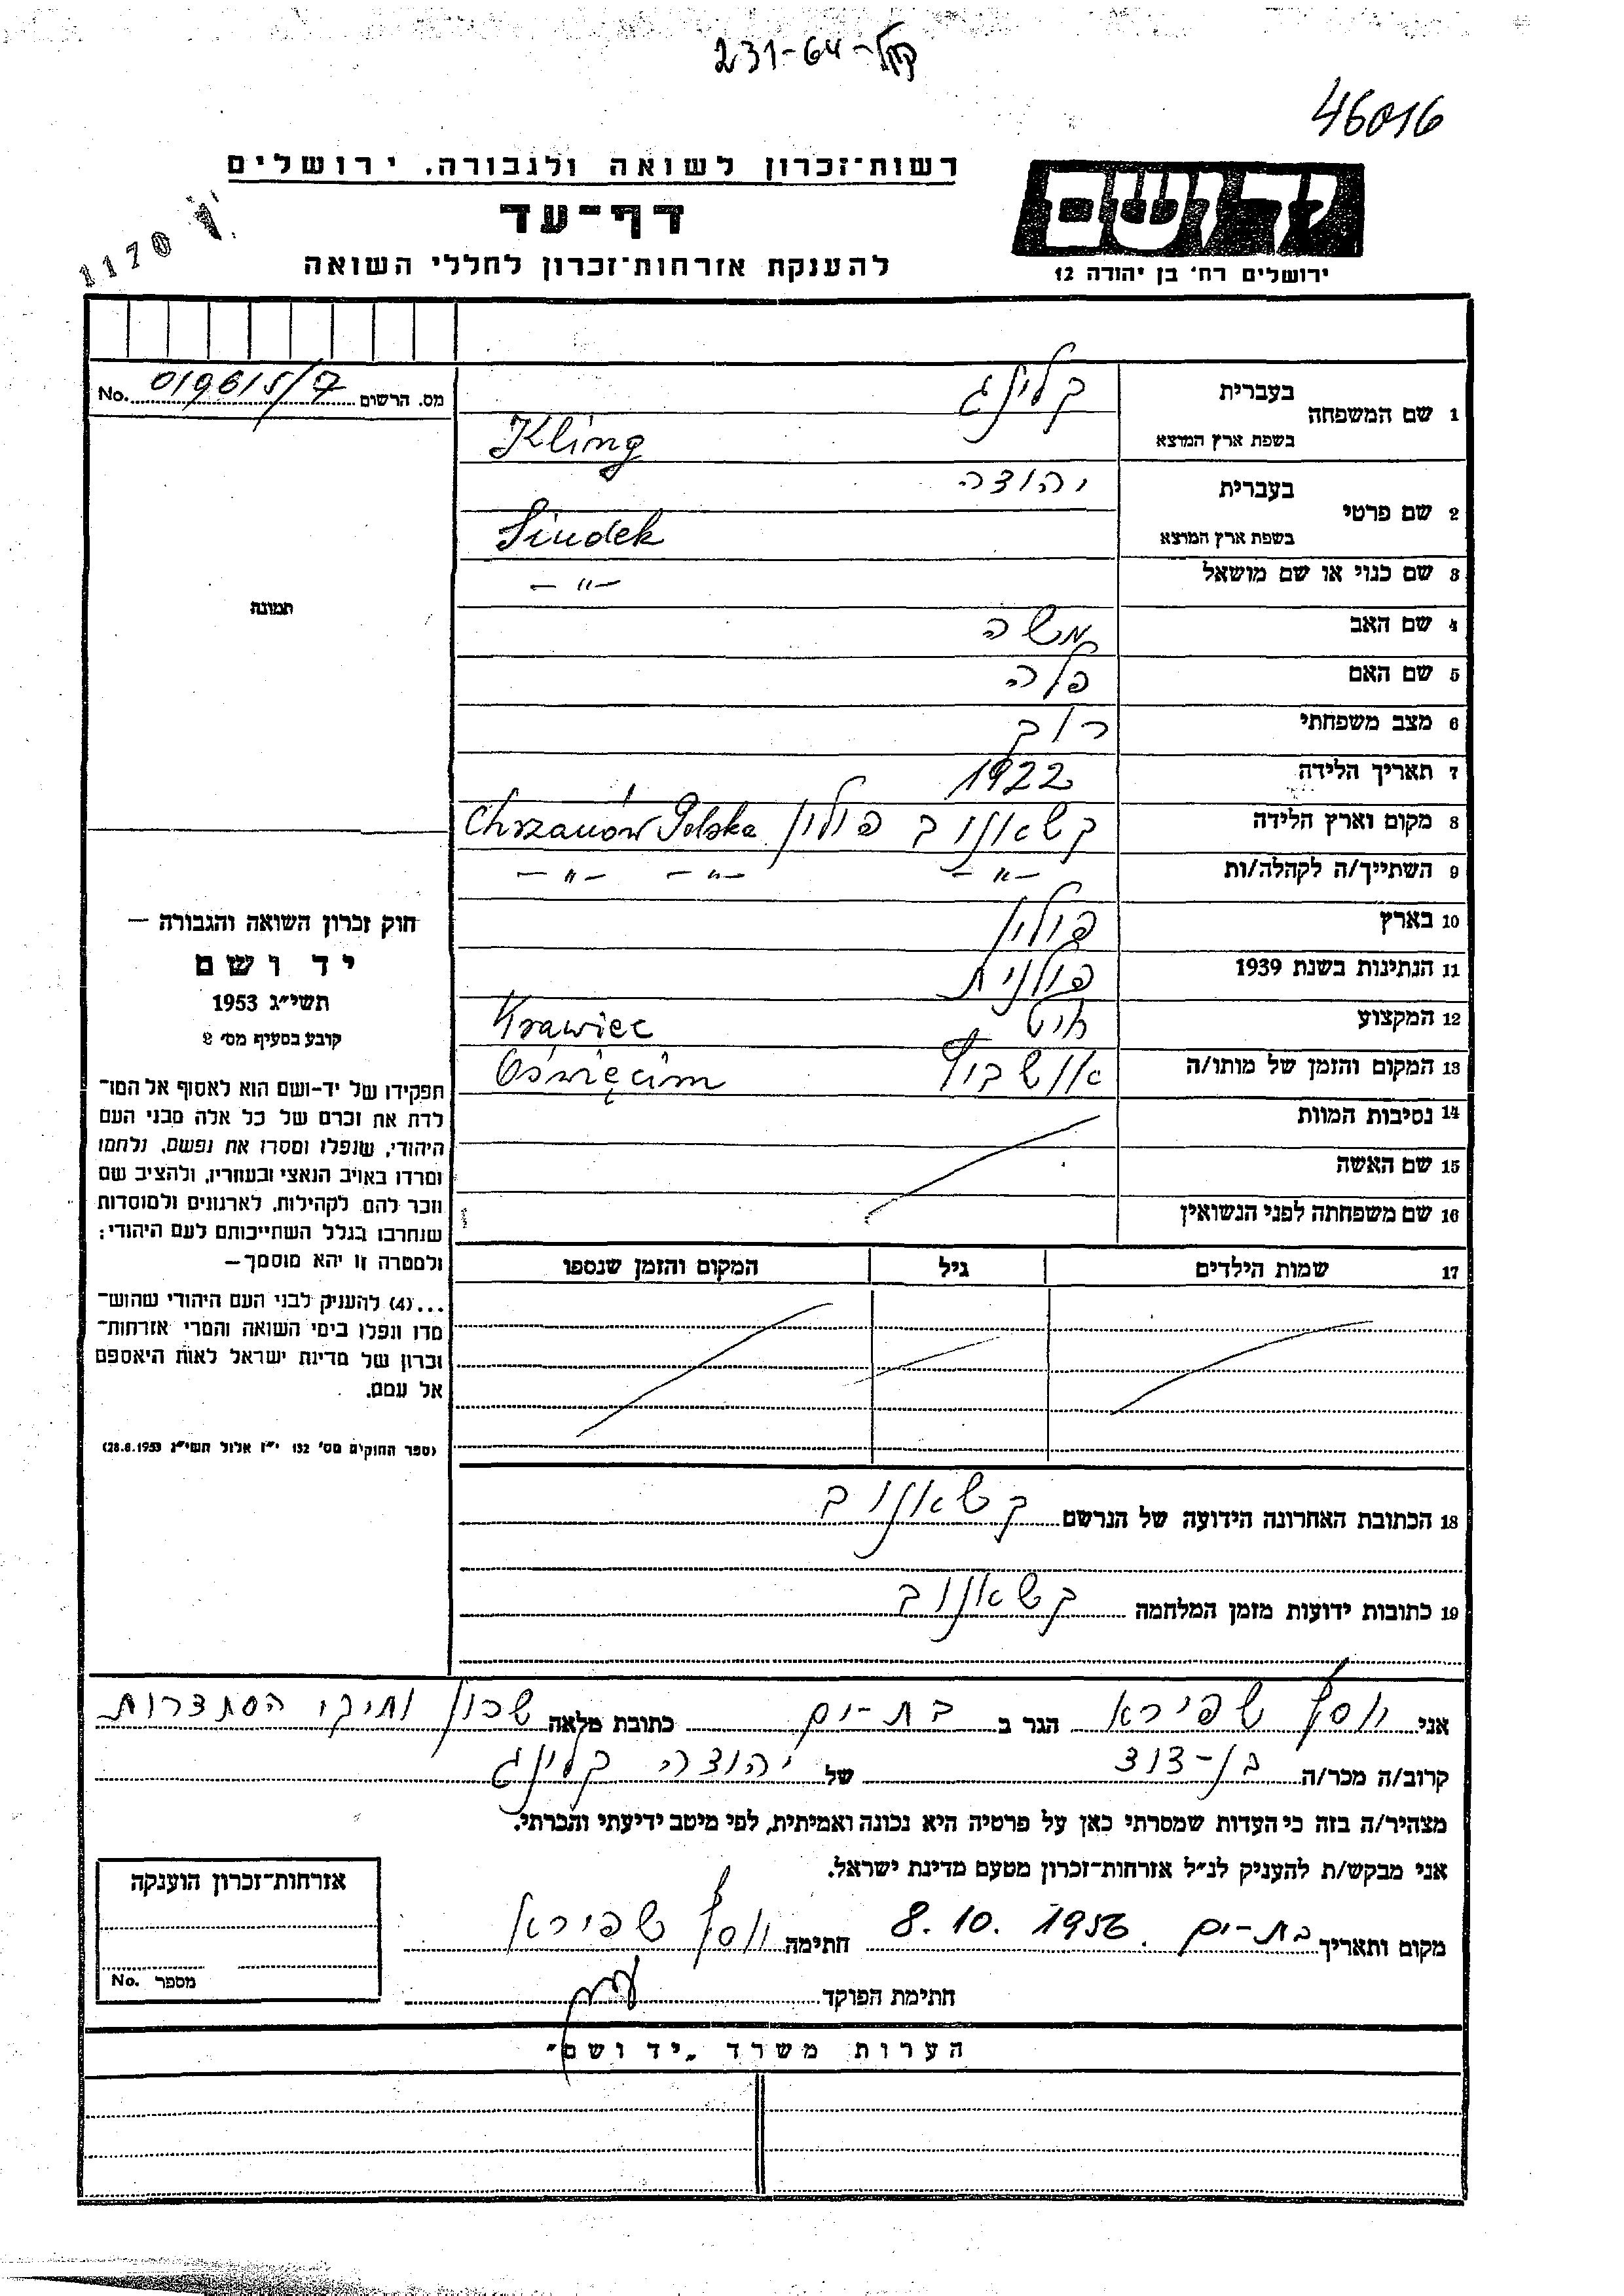 231-64-קל
46016
רשות־זכרון לשואה ולגבורה, ירושלים
דף־עד
להענקת אזרחות־זכרון לחללי השואה
יד ושם
ירושלים רח' בן יהודה 12
1170
מס. הרשום 019615/7 No.
1 שם המשפחה בעברית קלינג
בשפת ארץ המוצא Kling
2 שם פרטי בעברית יהודה
בשפת ארץ המוצא Siudek
3 שם כנוי או שם מושאל — " —
4 שם האב משה
5 שם האם פלה
6 מצב משפחתי רוק
7 תאריך הלידה 1922
8 מקום וארץ הלידה קשאנוב פולין Chrzanów Polska
9 השתייך/ה לקהלה/ות — " — — " — — " —
10 בארץ פולין
11 הנתינות בשנת 1939 פולנית
12 המקצוע חיט Krawiec
13 המקום והזמן של מותו/ה אושביץ Oświęcim
14 נסיבות המוות
15 שם האשה
16 שם משפחתה לפני הנשואין
17 שמות הילדים גיל המקום והזמן שנספו
תמונה
חוק זכרון השואה והגבורה —
יד ושם
תשי"ג 1953
קובע בסעיף מס' 2
תפקידו של יד-ושם הוא לאסוף אל המו־
לדת את זכרם של כל אלה מבני העם
היהודי, שנפלו ומסרו את נפשם, נלחמו
ומרדו באויב הנאצי ובעוזריו, ולהציב שם
וזכר להם לקהילות, לארגונים ולמוסדות
שנחרבו בגלל השתייכותם לעם היהודי;
ולמטרה זו יהא מוסמך —
...(4) להעניק לבני העם היהודי שהוש־
מדו ונפלו בימי השואה והמרי אזרחות־
זכרון של מדינת ישראל לאות היאספם
אל עמם.
(ספר החוקים מס' 132 י"ז אלול תשי"ג 28.8.1953)
18 הכתובת האחרונה הידועה של הנרשם קשאנוב
19 כתובות ידועות מזמן המלחמה קשאנוב
אני יוסף שפירא הגר ב בת-ים כתובת מלאה שכון ותיקי הסתדרות
קרוב/ה מכר/ה בן-דוד של יהודה קלינג
מצהיר/ה בזה כי העדות שמסרתי כאן על פרטיה היא נכונה ואמיתית, לפי מיטב ידיעתי והכרתי.
אני מבקש/ת להעניק לנ"ל אזרחות-זכרון מטעם מדינת ישראל.
מקום ותאריך בת-ים 8.10.1956 חתימה יוסף שפירא
חתימת הפוקד
אזרחות־זכרון הוענקה
מספר No.
הערות משרד „יד ושם"